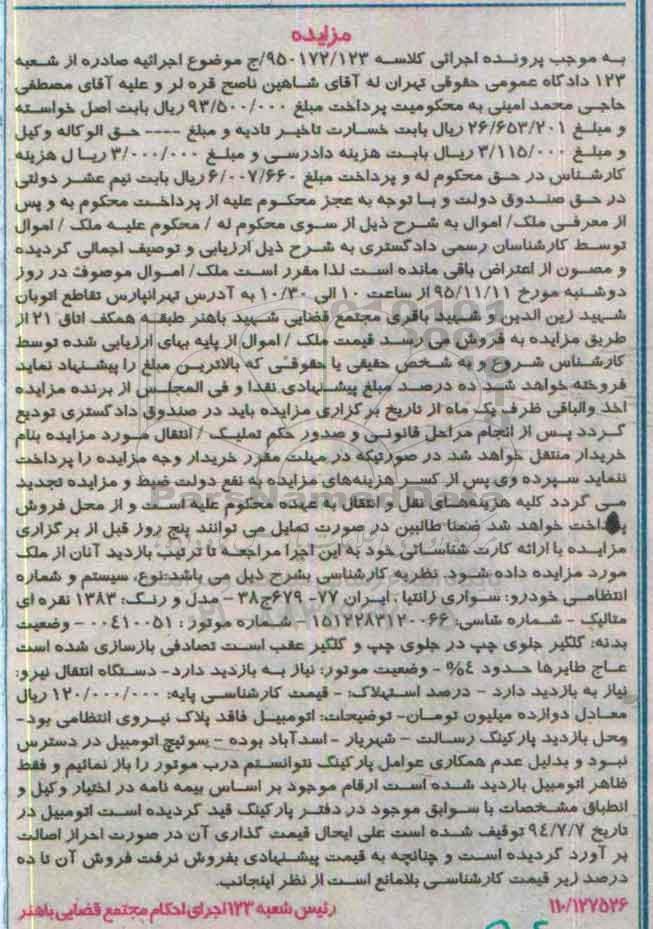 مزایده
به موجب پرونده اجرائی کلاسه ۹۵۰۱۷۲/۱۲۳/ج موضوع اجرائیه صادره از شعبه
۱۲۳ دادگاه عمومی حقوقی تهران له آقای شاهین ناصح قره لر و علیه آقای مصطفی
حاجی محمد امینی به محکومیت پرداخت مبلغ ۹۳/۵۰۰/۰۰۰ ریال بابت اصل خواسته
و مبلغ ۲۶/۶۵۳/۲۰۱ ریال بابت خسارت تاخیر تادیه و مبلغ ---- حق الوکاله وکیل
و مبلغ ۳/۱۱۵/۰۰۰ ریال بابت هزینه دادرسی و مبلغ ۳/۰۰۰/۰۰۰ ریا ل هزینه
کارشناس در حق محکوم له و پرداخت مبلغ ۶/۰۰۷/۶۶۰ ریال بابت نیم عشر دولتی
در حق صندوق دولت و با توجه به عجز محکوم علیه از پرداخت محکوم به و پس
از معرفی ملک/ اموال به شرح ذیل از سوی محکوم له / محکوم علیه ملک / اموال
توسط کارشناسان رسمی دادگستری به شرح ذیل ارزیابی و توصیف اجمالی گردیده
و مصون از اعتراض باقی مانده است لذا مقرر است ملک/ اموال موصوف در روز
دوشنبه مورخ ۹۵/۱۱/۱۱ از ساعت ۱۰ الی ۱۰/۳۰ به آدرس تهرانپارس تقاطع اتوبان
شهید زین الدین و شهید باقری مجتمع قضایی شهید باهنر طبقه همکف اتاق ۲۱ از
طریق مزایده به فروش می رسد قیمت ملک / اموال از پایه بهای ارزیابی شده توسط
کارشناس شروع و به شخص حقیقی یا حقوقی که بالاترین مبلغ را پیشنهاد نماید
فروخته خواهد شد ده درصد مبلغ پیشنهادی نقدا و فی المجلس از برنده مزایده
اخذ والباقی ظرف یک ماه از تاریخ برگزاری مزایده باید در صندوق دادگستری تودیع
گردد پس از انجام مراحل قانونی و صدور حکم تملیک / انتقال مورد مزایده بنام
خریدار منتقل خواهد شد در صورتیکه در مهلت مقرر خریدار وجه مزایده را پرداخت
ننماید سپرده وی پس از کسر هزینه‌های مزایده به نفع دولت ضبط و مزایده تجدید
می گردد کلیه هزینه‌های نقل و انتقال به عهده محکوم علیه است و از محل فروش
پرداخت خواهد شد ضمنا طالبین در صورت تمایل می توانند پنج روز قبل از برگزاری
مزایده با ارائه کارت شناسائی خود به این اجرا مراجعه تا ترتیب بازدید آنان از ملک
مورد مزایده داده شود. نظریه کارشناسی بشرح ذیل می باشد:نوع، سیستم و شماره
انتظامی خودرو: سواری زانتیا : ایران ۷۷- ۶۷۹ج۳۸ - مدل و رنگ: ۱۳۸۳ نقره ای
متالیک - شماره شاسی: ۱۵۱۲۲۸۳۱۲۰۰۶۶ - شماره موتور : ۰۰۴۱۰۰۵۱ - وضعیت
بدنه: گلگیر جلوی چپ در جلوی چپ و گلگیر عقب است تصادفی بازسازی شده است
عاج طایرها حدود ۴% - وضعیت موتور: نیاز به بازدید دارد- دستگاه انتقال نیرو:
نیاز به بازدید دارد - درصد استهلاک: - قیمت کارشناسی پایه: ۱۲۰/۰۰۰/۰۰۰ ریال
معادل دوازده میلیون تومان- توضیحات: اتومبیل فاقد پلاک نیروی انتظامی بود-
محل بازدید پارکینگ رسالت - شهریار - اسدآباد بوده - سوئیچ اتومبیل در دسترس
نبود و بدلیل عدم همکاری عوامل پارکینگ نتوانستم درب موتور را باز نمائیم و فقط
ظاهر اتومبیل بازدید شده است ارقام موجود بر اساس بیمه نامه در اختیار وکیل و
انطباق مشخصات با سوابق موجود در دفتر پارکینگ قید گردیده است اتومبیل در
تاریخ ۹۴/۷/۷ توقیف شده است علی ایحال قیمت گذاری آن در صورت احراز اصالت
بر آورد گردیده است و چنانچه به قیمت پیشنهادی بفروش نرفت فروش آن تا ده
درصد زیر قیمت کارشناسی بلامانع است از نظر اینجانب.
۱۱۰/۱۲۷۵۲۶ رئیس شعبه ۱۲۳ اجرای احکام مجتمع قضایی باهنر
ParsNamadData